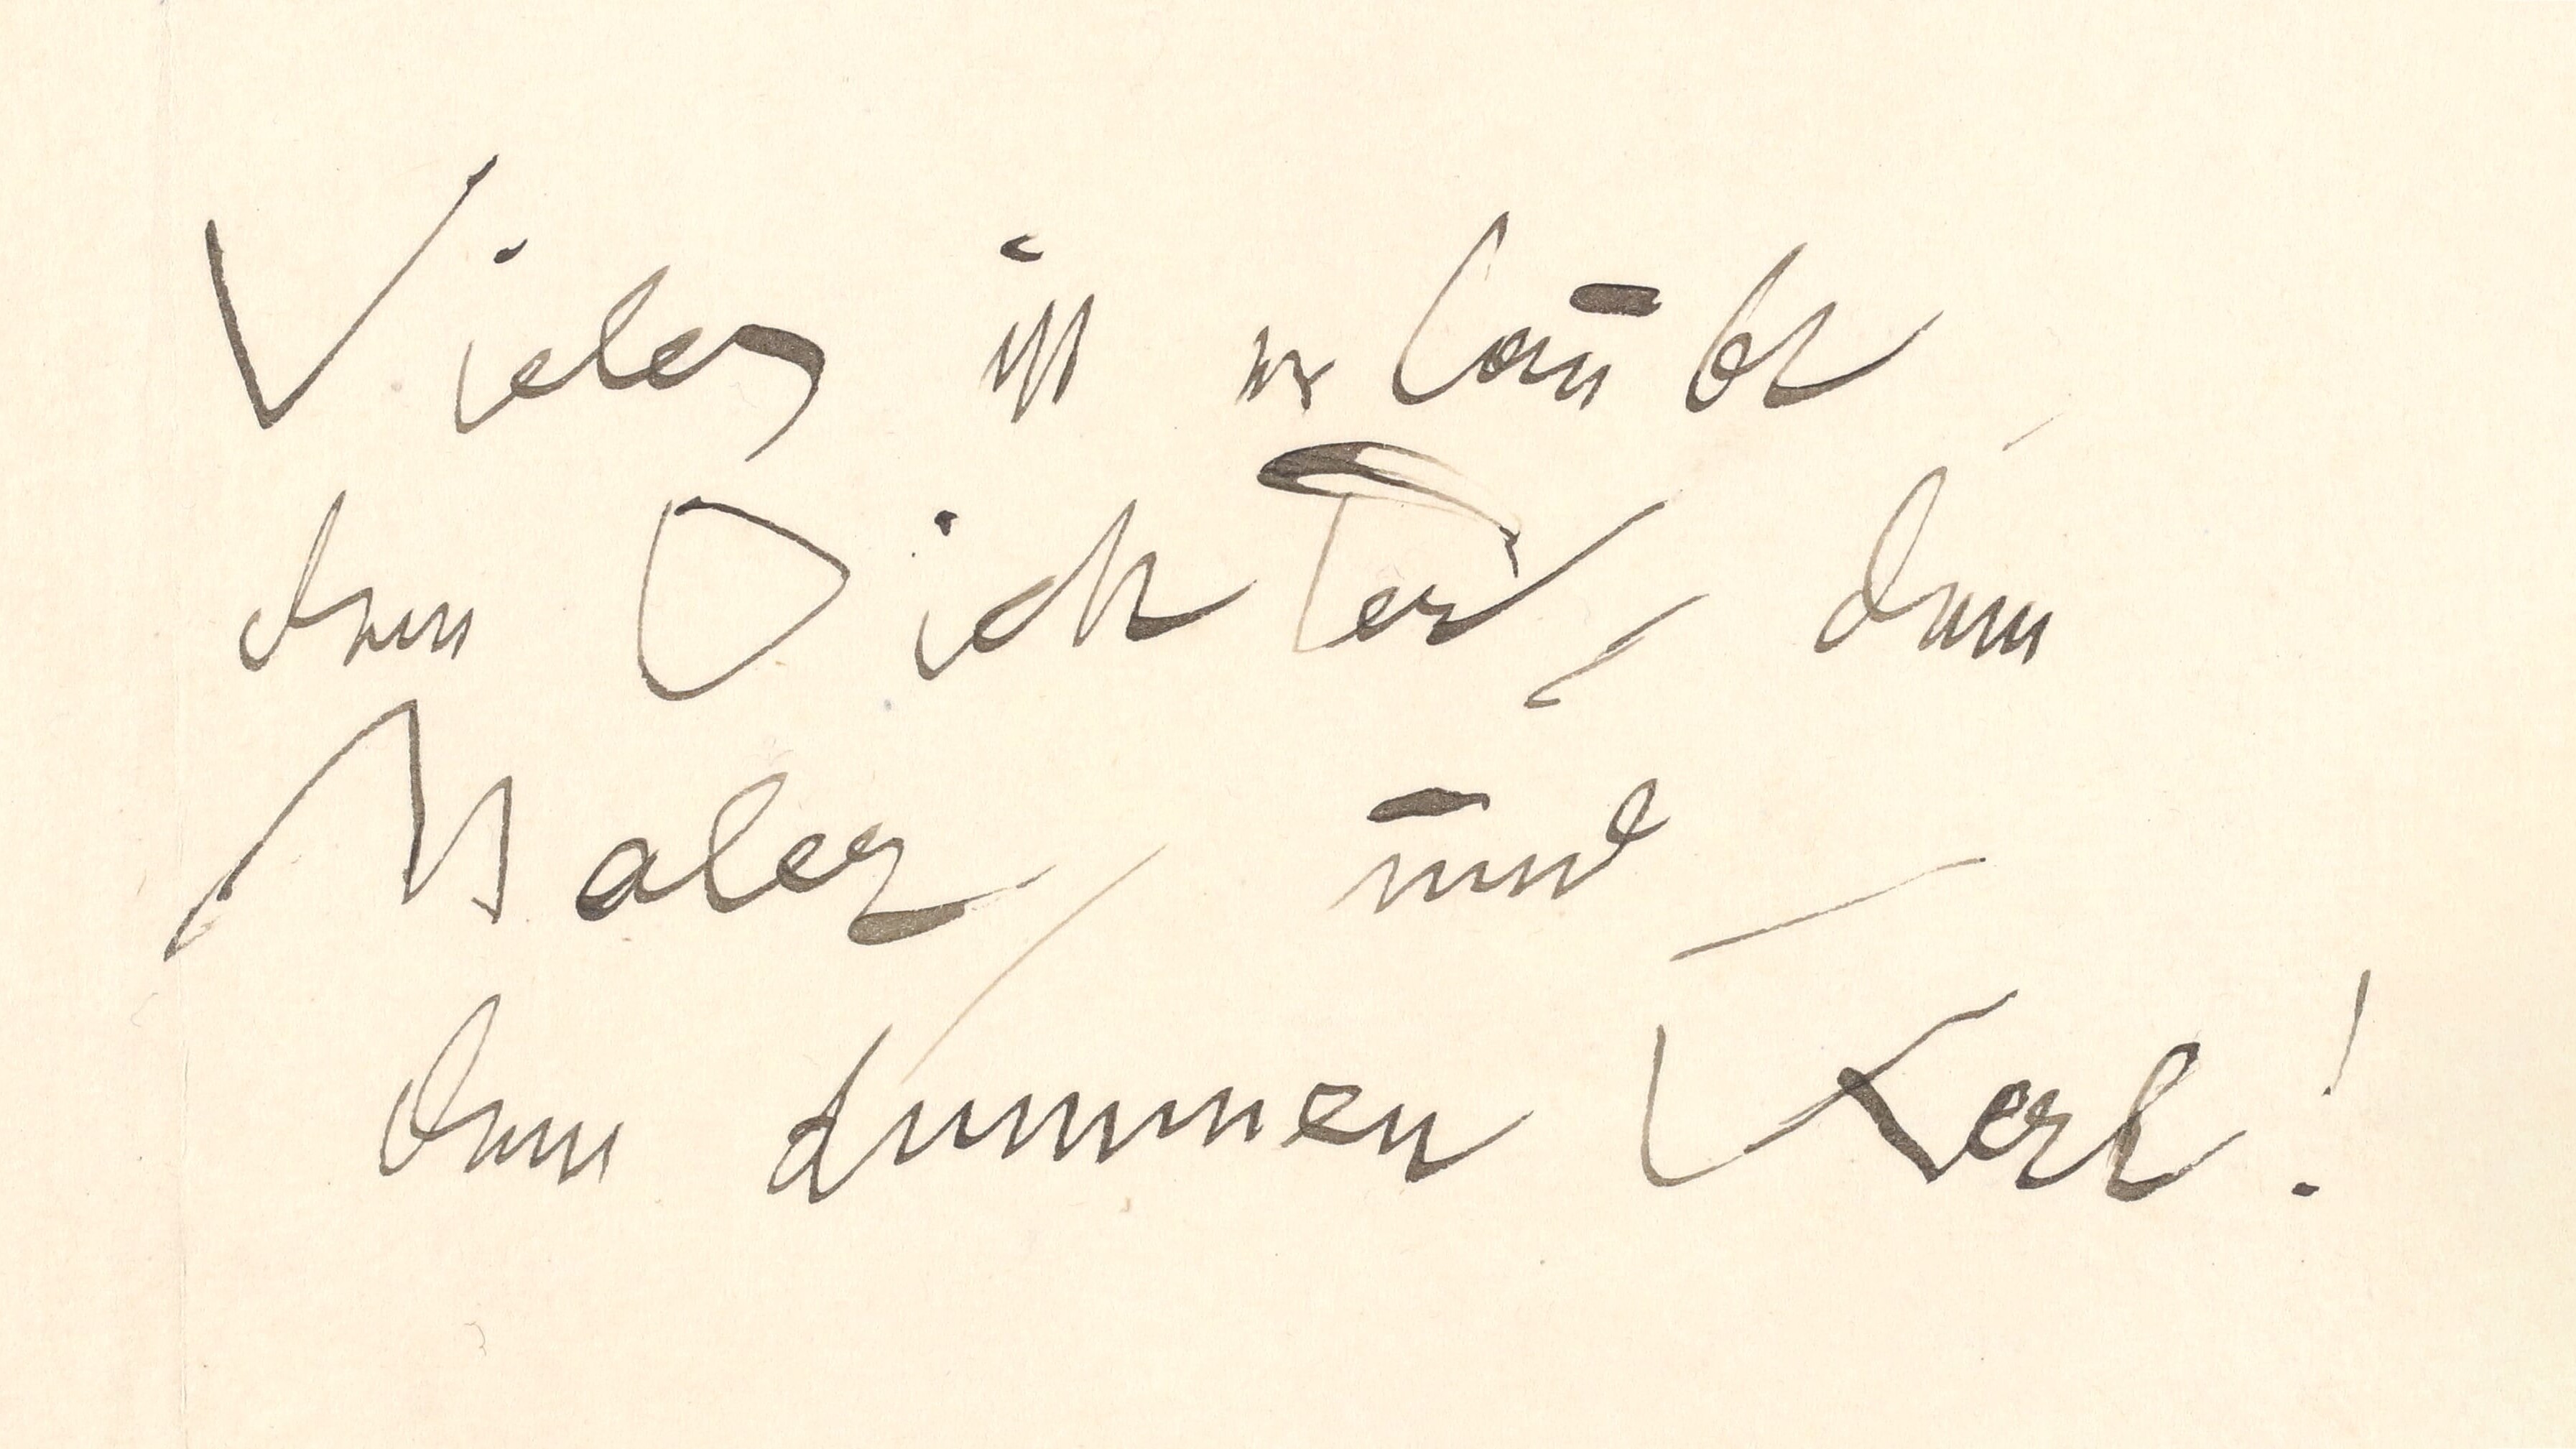 Vieles ist erlaubt
dem Dichter, dem
Maler, und
dem dummen Kerl!